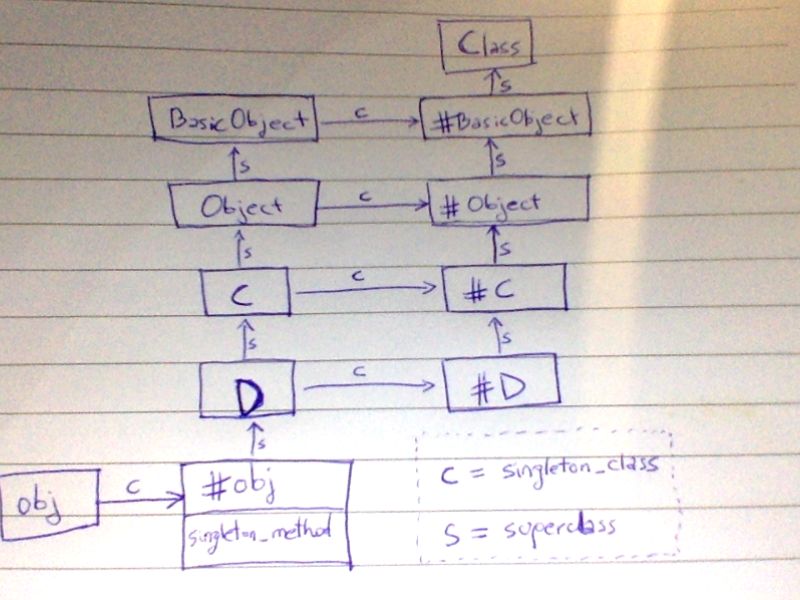 Class
S
BasicObject
c
#BasicObject
S
S
Object
c
#Object
S
S
C
c
#C
S
S
D
c
#D
S
obj
c
#obj
singleton_method
C = singleton_class
S = superclass